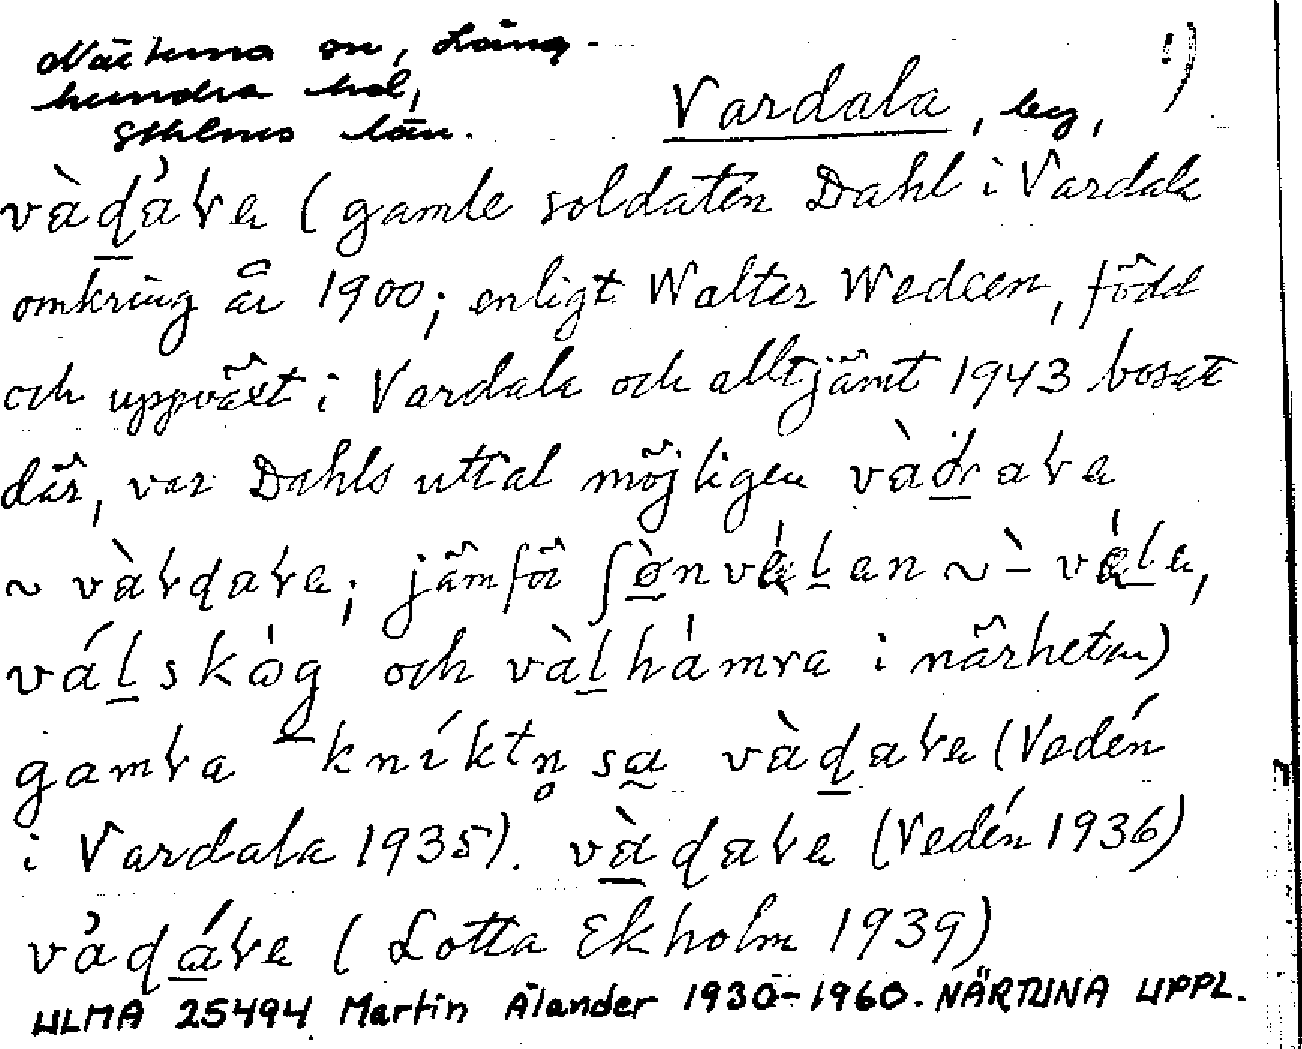 Närtuna sn, Lång-
hundra hd,
Sthlms län.
Vardala, by, 1)
vàdȧla (gamle soldaten Dahl i Vardala
omkring år 1900; enligt Walter Wedeen, född
och uppväxt i Vardala och alltjämt 1943 bosatt
där, var Dahls uttal möjligen vàdrala
~ vàlqala; jämför ʃønválan ~ ̀- vála,
válskòg och vàlhámra i närheten)
gamla kníktn sa vàdala (Vedén
i Vardala 1935). vàdala (Vedén 1936)
vàdála (Lotta Ekholm 1939)
ULMA 25494 Martin Ålander 1930-1960. NÄRTUNA UPPL.